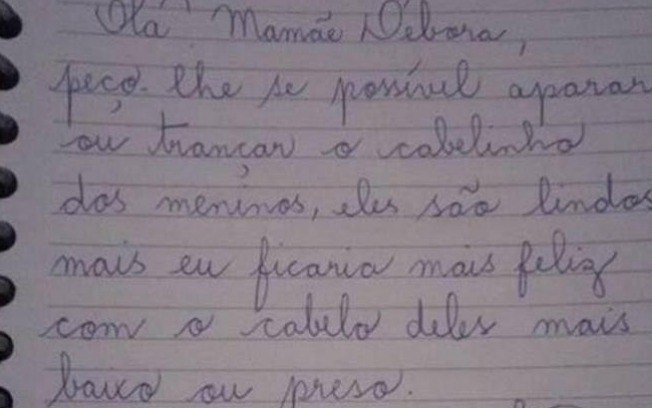 Olá Mamãe Débora,
peço-lhe se possível aparar
ou trançar o cabelinho
dos meninos, eles são lindos
mais eu ficaria mais feliz
com o cabelo deles mais
baixo ou preso.